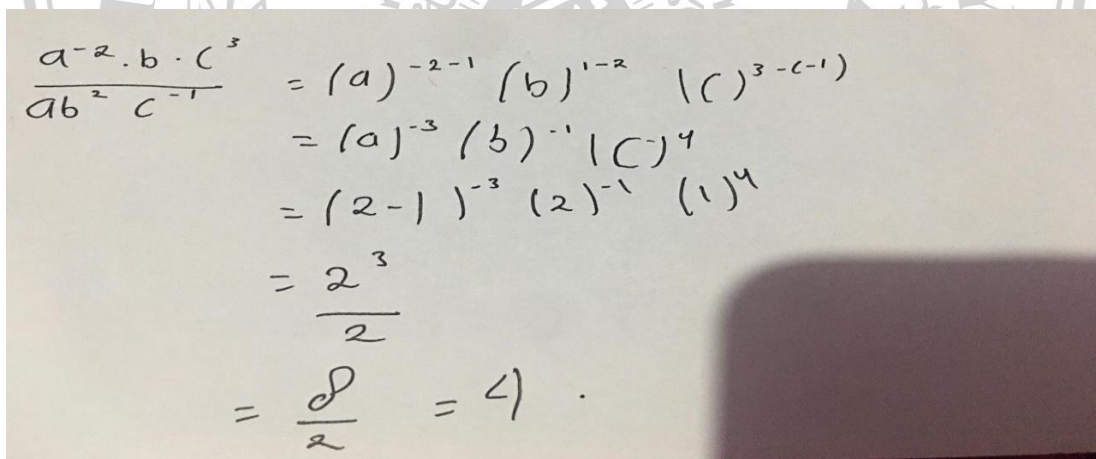 a⁻² . b · c³ / ab² c⁻¹ = (a)⁻²⁻¹ (b)¹⁻² (c)³⁻⁽⁻¹⁾
= (a)⁻³ (b)⁻¹ (c)⁴
= (2-1)⁻³ (2)⁻¹ (1)⁴
= 2³ / 2
= 8 / 2 = 4 .